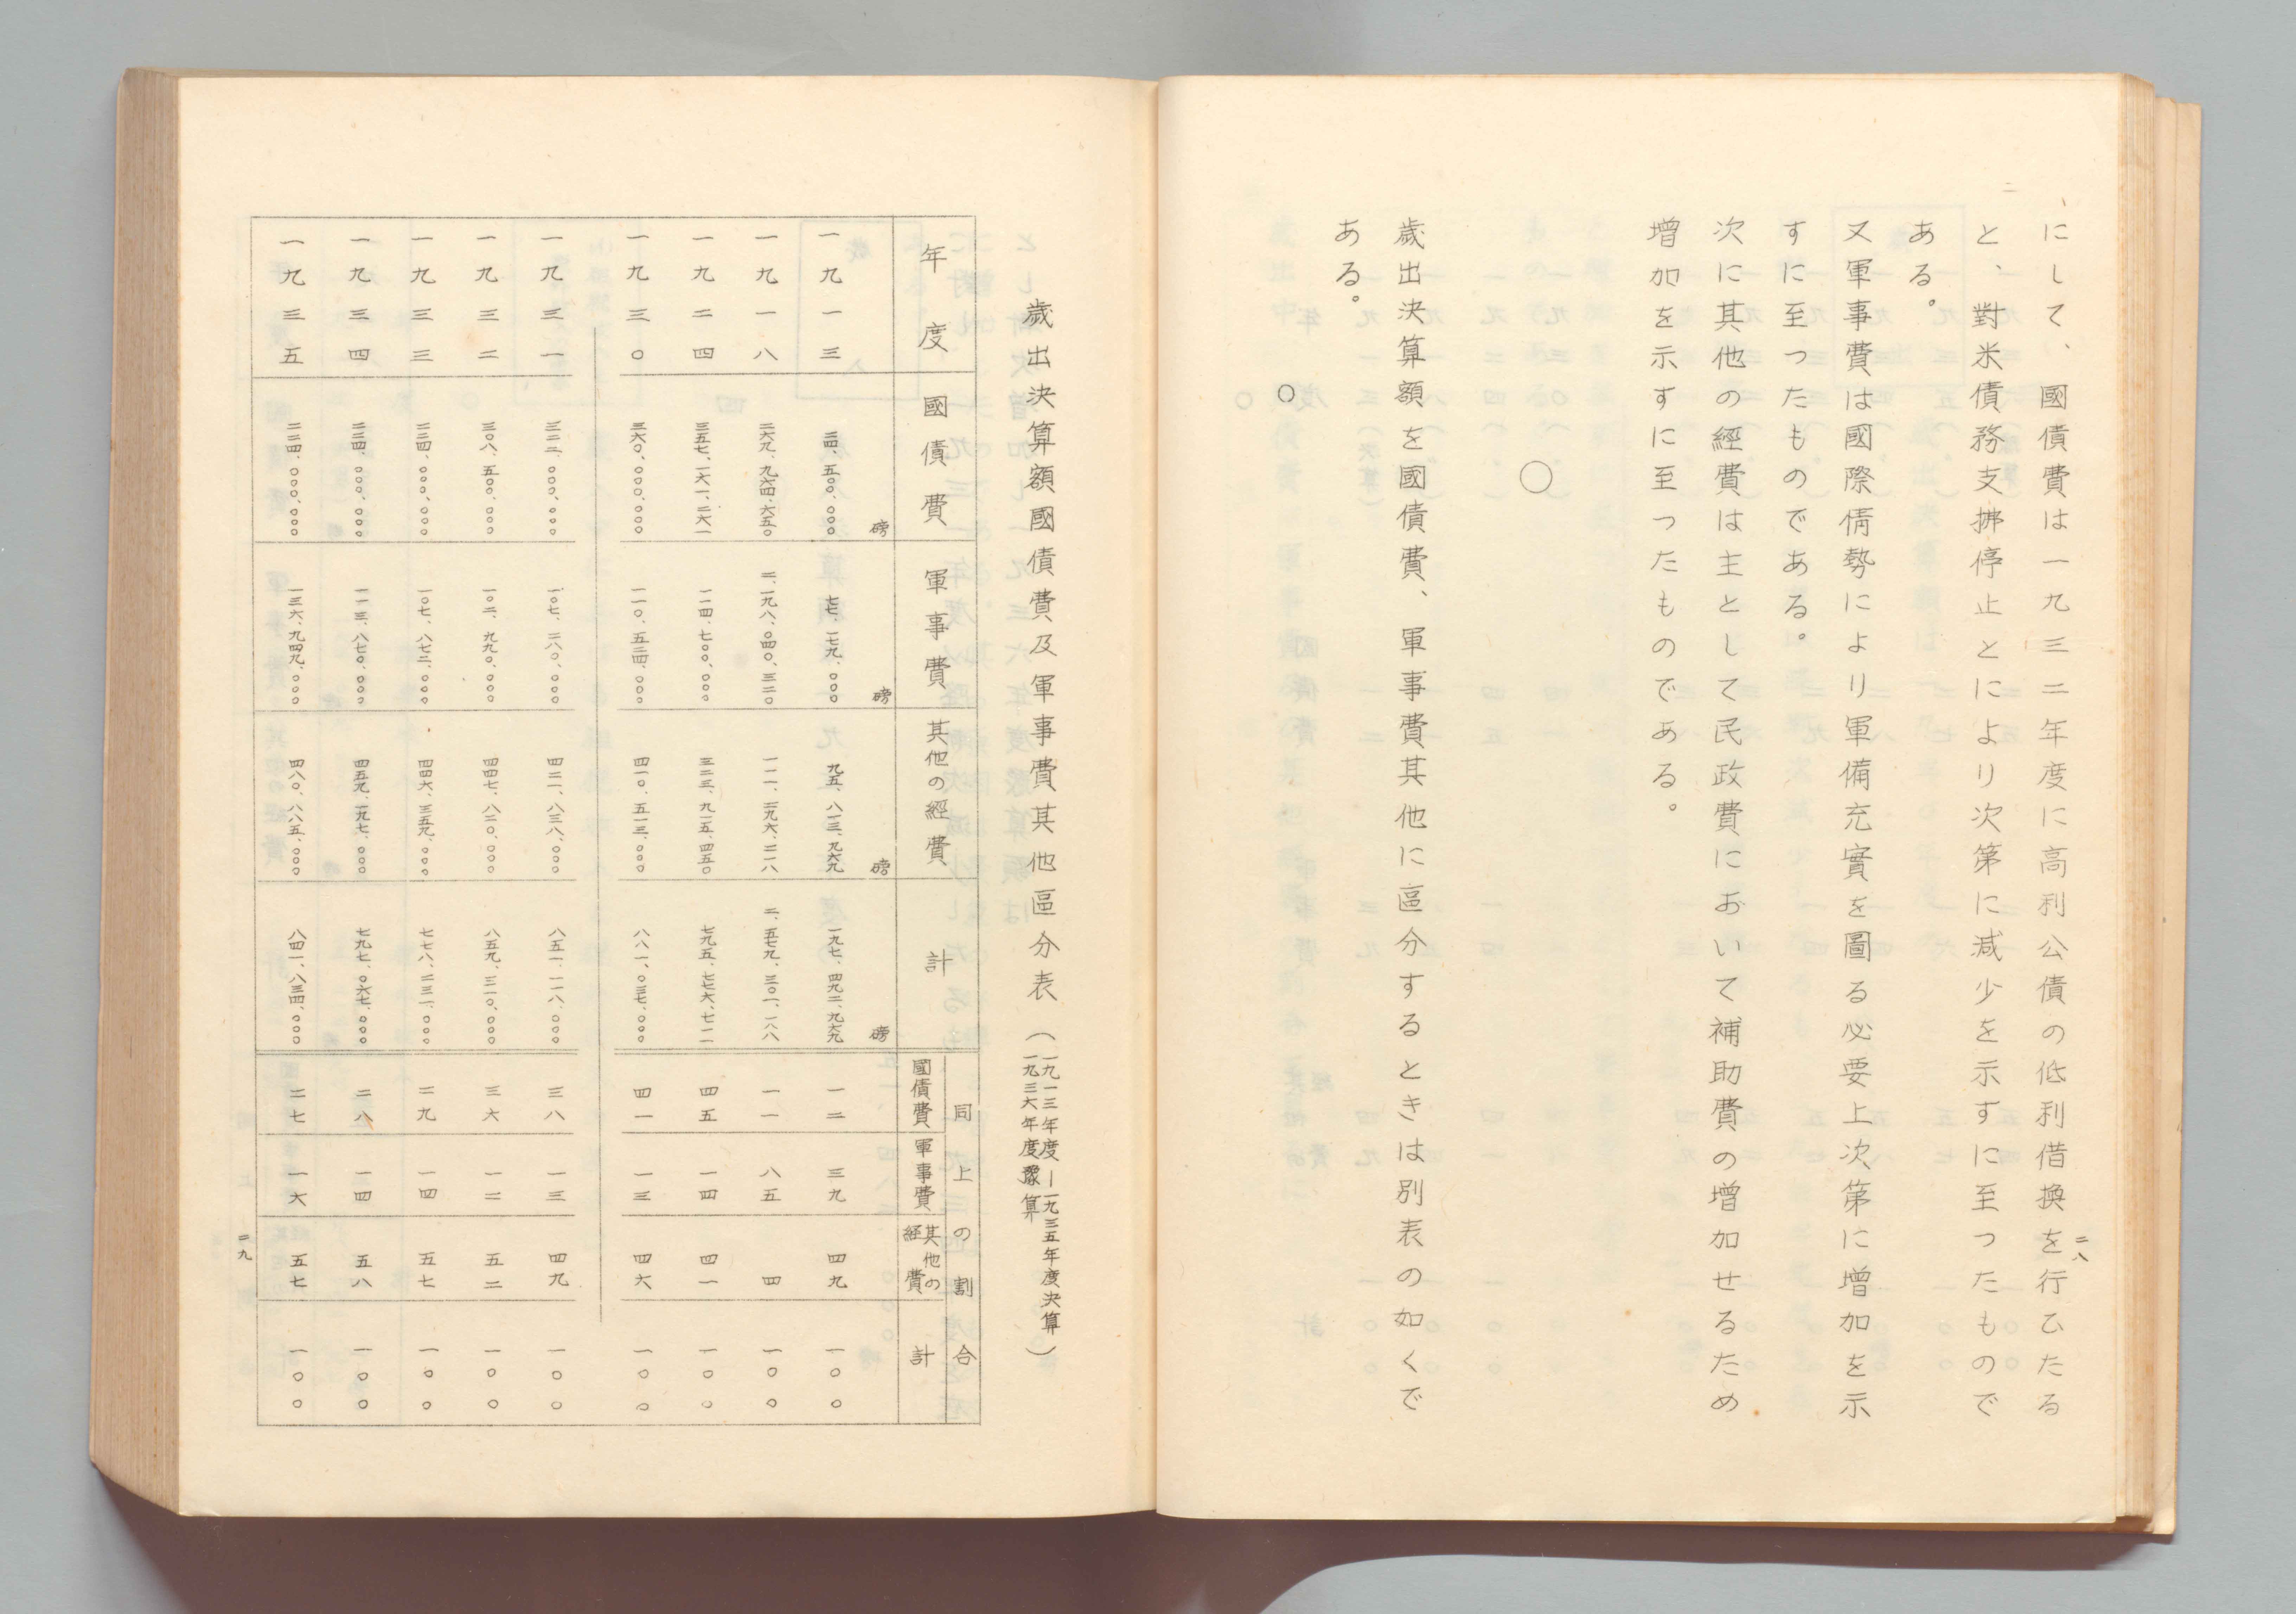 にして、國債費は一九三二年度に高利公債の低利借換を行ひたる
と、對米債務支拂停止とにより次第に減少を示すに至つたもので
ある。
又軍事費は國際情勢により軍備充實を圖る必要上次第に増加を示
すに至つたものである。
次に其他の經費は主として民政費において補助費の増加せるため
増加を示すに至つたものである。
○
歳出決算額を國債費、軍事費其他に區分するときは別表の如くで
ある。
○
二八
歳出決算額國債費及軍事費其他區分表（一九一三年度—一九三五年度決算
一九三六年度豫算）
年度 國債費 軍事費 其他の經費 計 同上の割合 國債費 軍事費 其他の經費 計
磅 磅 磅 磅
一九一三 二四、五〇〇、〇〇〇 七七、一七九、〇〇〇 九五、八一三、九六九 一九七、四九二、九六九 一二 三九 四九 一〇〇
一九一八 二六九、九六四、六五〇 二、一九八、〇四〇、三二〇 一一一、二九六、二一八 二、五七九、三〇一、一八八 一一 八五 四 一〇〇
一九二四 三五七、一六一、二六一 一一四、七〇〇、〇〇〇 三二三、九一五、四五〇 七九五、七七六、七一一 四五 一四 四一 一〇〇
一九三〇 三六〇、〇〇〇、〇〇〇 一一〇、五二四、〇〇〇 四一〇、五一三、〇〇〇 八八一、〇三七、〇〇〇 四一 一三 四六 一〇〇
一九三一 三二二、〇〇〇、〇〇〇 一〇七、二八〇、〇〇〇 四二一、八三八、〇〇〇 八五一、一一八、〇〇〇 三八 一三 四九 一〇〇
一九三二 三〇八、五〇〇、〇〇〇 一〇二、九九〇、〇〇〇 四四七、八二〇、〇〇〇 八五九、三一〇、〇〇〇 三六 一二 五二 一〇〇
一九三三 二二四、〇〇〇、〇〇〇 一〇七、八七二、〇〇〇 四四六、三五九、〇〇〇 七七八、二三一、〇〇〇 二九 一四 五七 一〇〇
一九三四 二二四、〇〇〇、〇〇〇 一一三、八七〇、〇〇〇 四五九、一九七、〇〇〇 七九七、〇六七、〇〇〇 二八 一四 五八 一〇〇
一九三五 二二四、〇〇〇、〇〇〇 一三六、九四九、〇〇〇 四八〇、八八五、〇〇〇 八四一、八三四、〇〇〇 二七 一六 五七 一〇〇
二九